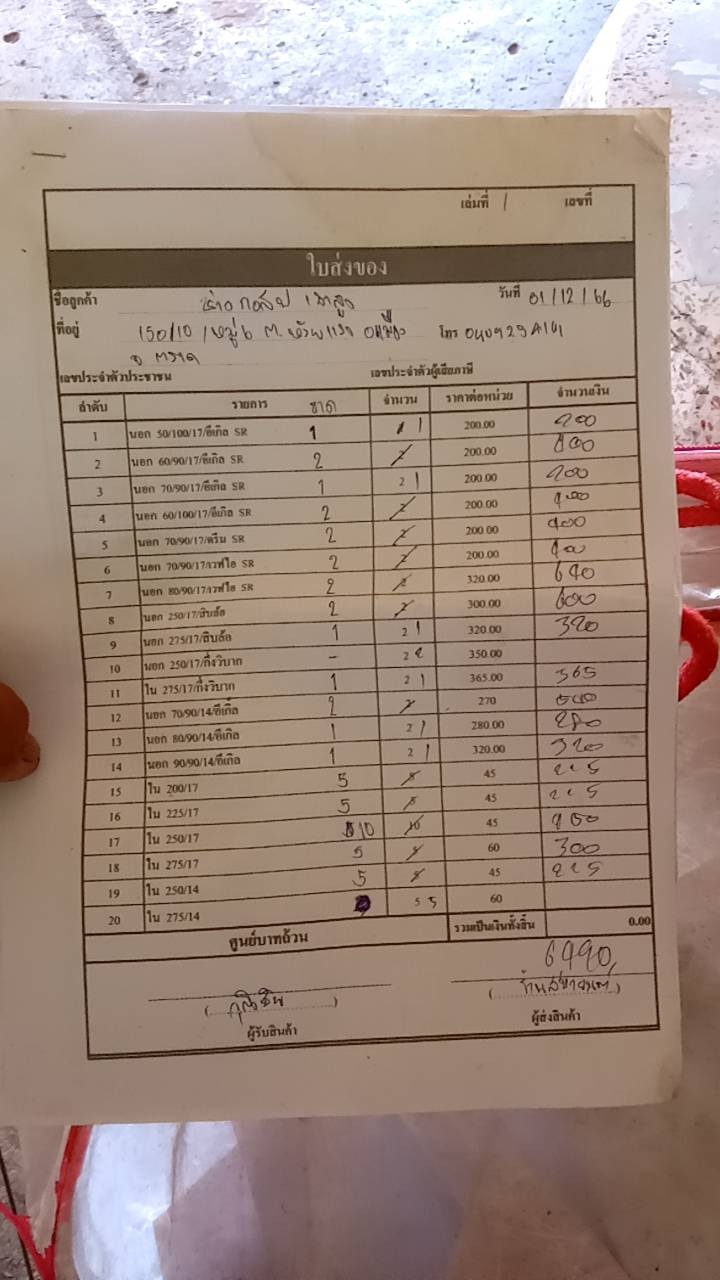 เล่มที่ 1 เลขที่
ใบส่งของ
ชื่อลูกค้า วันที่ 01/12/66
ที่อยู่ 150/10 หมู่ 6 ต. โทร
จ ตราด
เลขประจำตัวประชาชน เลขประจำตัวผู้เสียภาษี
ลำดับ รายการ ขาด จำนวน ราคาต่อหน่วย จำนวนเงิน
1 นอก 50/100/17/อีเกิล SR 1 1 200.00 200
2 นอก 60/90/17/อีเกิล SR 2 2 200.00
3 นอก 70/90/17/อีเกิล SR 1 2 1 200.00 200
4 นอก 60/100/17/อีเกิล SR 2 2 200.00 400
5 นอก 70/90/17/ดรีม SR 2 2 200.00 400
6 นอก 70/90/17/เวฟไอ SR 2 2 200.00 400
7 นอก 80/90/17/เวฟไอ SR 2 2 320.00 640
8 นอก 250/17/สิบล้อ 2 2 300.00 600
9 นอก 275/17/สิบล้อ 1 2 1 320.00 320
10 นอก 250/17/กึ่งวิบาก - 2 2 350.00
11 ใน 275/17/กึ่งวิบาก 1 2 1 365.00 365
12 นอก 70/90/14/อีเกิ้ล 2 2 270 540
13 นอก 80/90/14/อีเกิล 1 2 1 280.00 280
14 นอก 90/90/14/อีเกิล 1 2 1 320.00 320
15 ใน 200/17 5 5 45 225
16 ใน 225/17 5 5 45 225
17 ใน 250/17 10 10 45 450
18 ใน 275/17 5 5 60 300
19 ใน 250/14 5 5 45 225
20 ใน 275/14 5 5 60
ศูนย์บาทถ้วน รวมเป็นเงินทั้งสิ้น 0.00
6490
ผู้รับสินค้า ผู้ส่งสินค้า